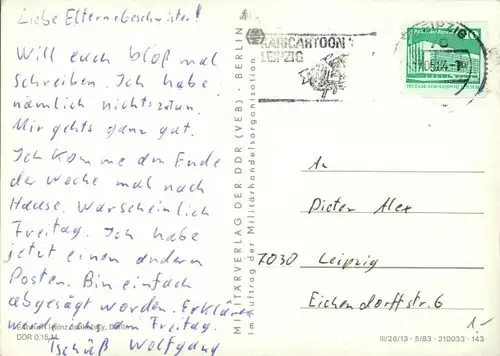 Liebe Eltern u. Geschwister!
Will euch bloß mal
schreiben. Ich habe
nämlich nichts zutun.
Mir gehts ganz gut.
Ich komme am Ende
der Woche mal nach
Hause. Warscheinlich
Freitag. Ich habe
jetzt einen andern
Posten. Bin einfach
abgesägt worden. Erkläre
werde ichs am Freitag.
Tschüß Wolfgang
DDR 0,15 M
MILITÄRVERLAG DER DDR (VEB) · BERLIN
im Auftrag der Militärhandelsorganisation
KARICARTOON
LEIPZIG
LEIPZIG
An
Dieter Alex
7030 Leipzig
Eichendorffstr. 6
1,-
III/26/13 · 5/83 · 310033 · 143